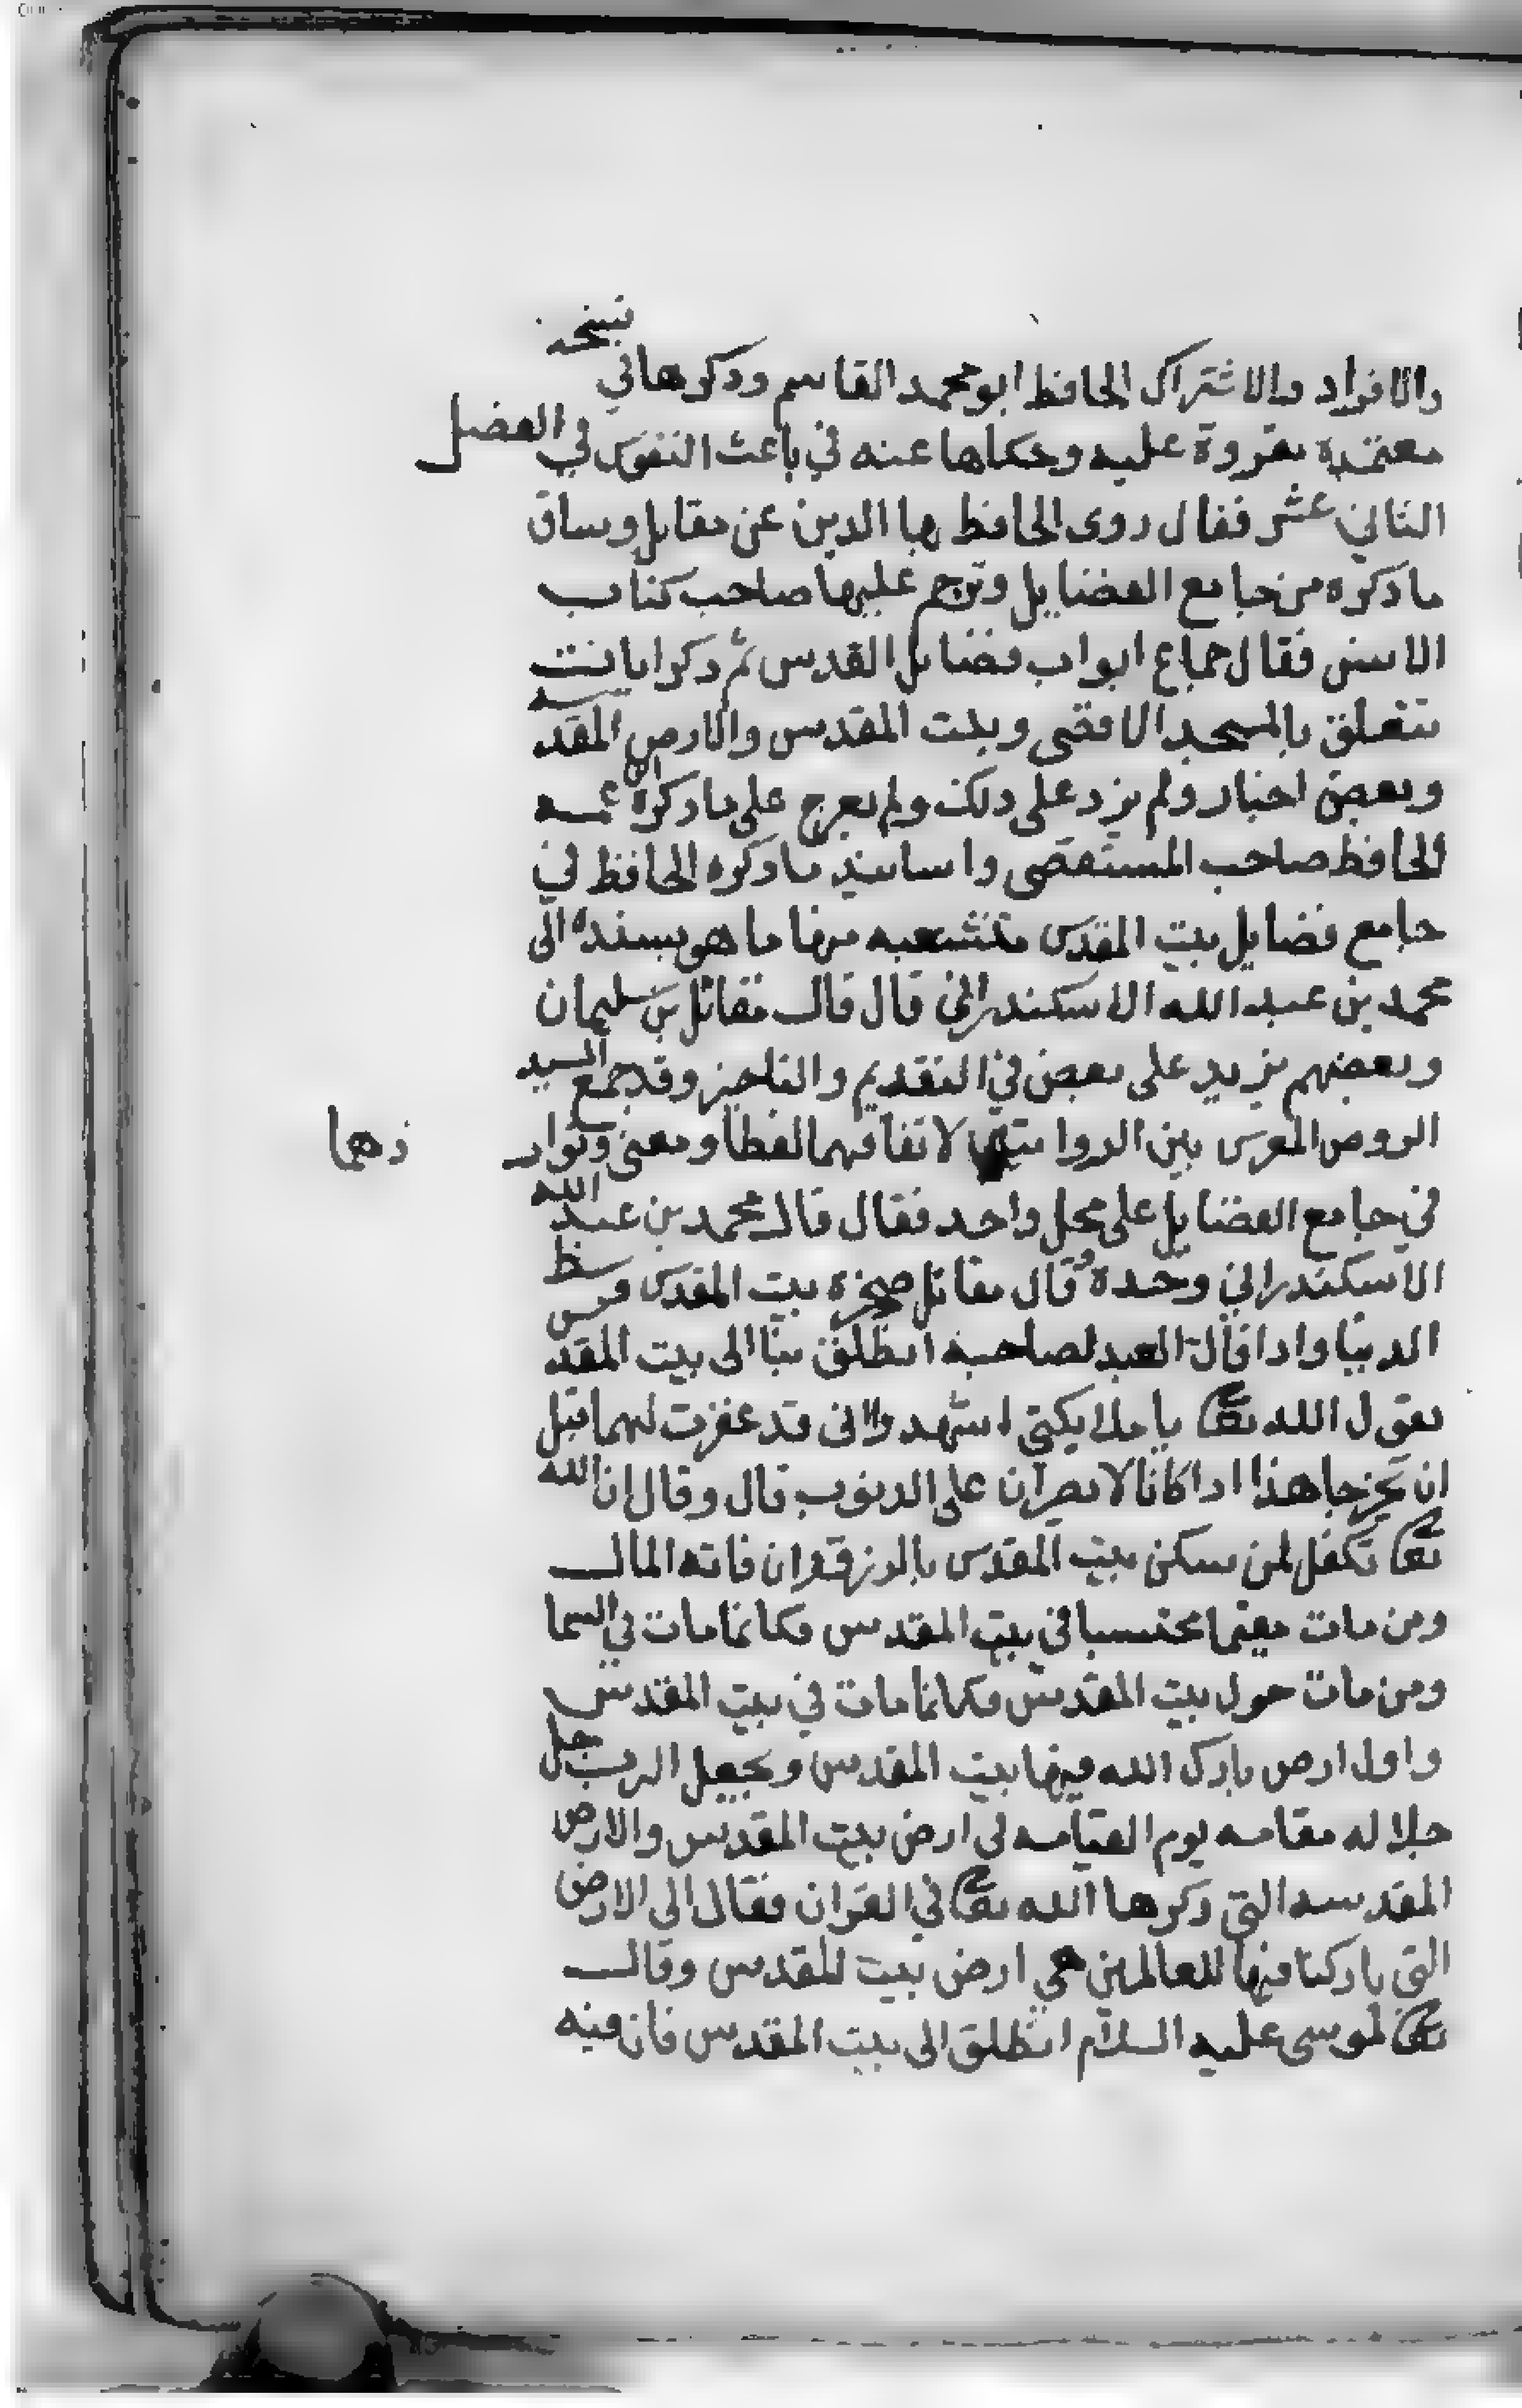 والافراد والاشتراك الحافظ ابو محمد القاسم وذكرها في نسخه
معتمدة مقروة عليه وحكاها عنه في باعث النفوس في الفصل
الثاني عشر فقال روى الحافظ بها الدين عن مقاتل وساق
ما ذكره من جامع الفضايل وترجم عليها صاحب كتاب
الانس فقال جماع ابواب فضايل القدس ثم ذكر ايات
تتعلق بالمسجد الاقصى وبيت المقدس والارض المقدسه
وبعض اخبار ولم يزد على ذلك ولم يعرج على ما ذكره عمه
الحافظ صاحب المستقصى واسانيد ما ذكره الحافظ في
جامع فضايل بيت المقدس متشعبه منها ما هو بسنده الى
محمد بن عبد الله الاسكندراني قال قال مقاتل بن سليمان
وبعضهم يزيد على بعض في التقديم والتاخير وقد جمع السيد
الروض المغرس بين الروايتين لاتفاقهما لفظا ومعنى وتوار
ذهما
في جامع الفضايل على محل واحد فقال قال محمد بن عبد الله
الاسكندراني وحده وقال مقاتل صخرة بيت المقدس وسط
الدنيا واذا قال العبد لصاحبه انطلق بنا الى بيت المقدس
يقول الله تعا يا ملايكتي اشهدوا اني قد غفرت لهما قبل
ان يخرجا هذا اذا كانا لا يصران على الذنوب قال وقال ان الله
تعا تكفل لمن سكن بيت المقدس بالرزق وان فاته المال
ومن مات مقيما محتسبا في بيت المقدس فكانما مات في السما
ومن مات حول بيت المقدس فكانما مات في بيت المقدس
واول ارض بارك الله فيها بيت المقدس ويجعل الرب جل
جلاله مقامه يوم القيامه في ارض بيت المقدس والارض
المقدسه التي ذكرها الله تعا في القران فقال الى الارض
التي باركنا فيها للعالمين هي ارض بيت المقدس وقال
تعا لموسى عليه السلام انطلق الى بيت المقدس فان فيه